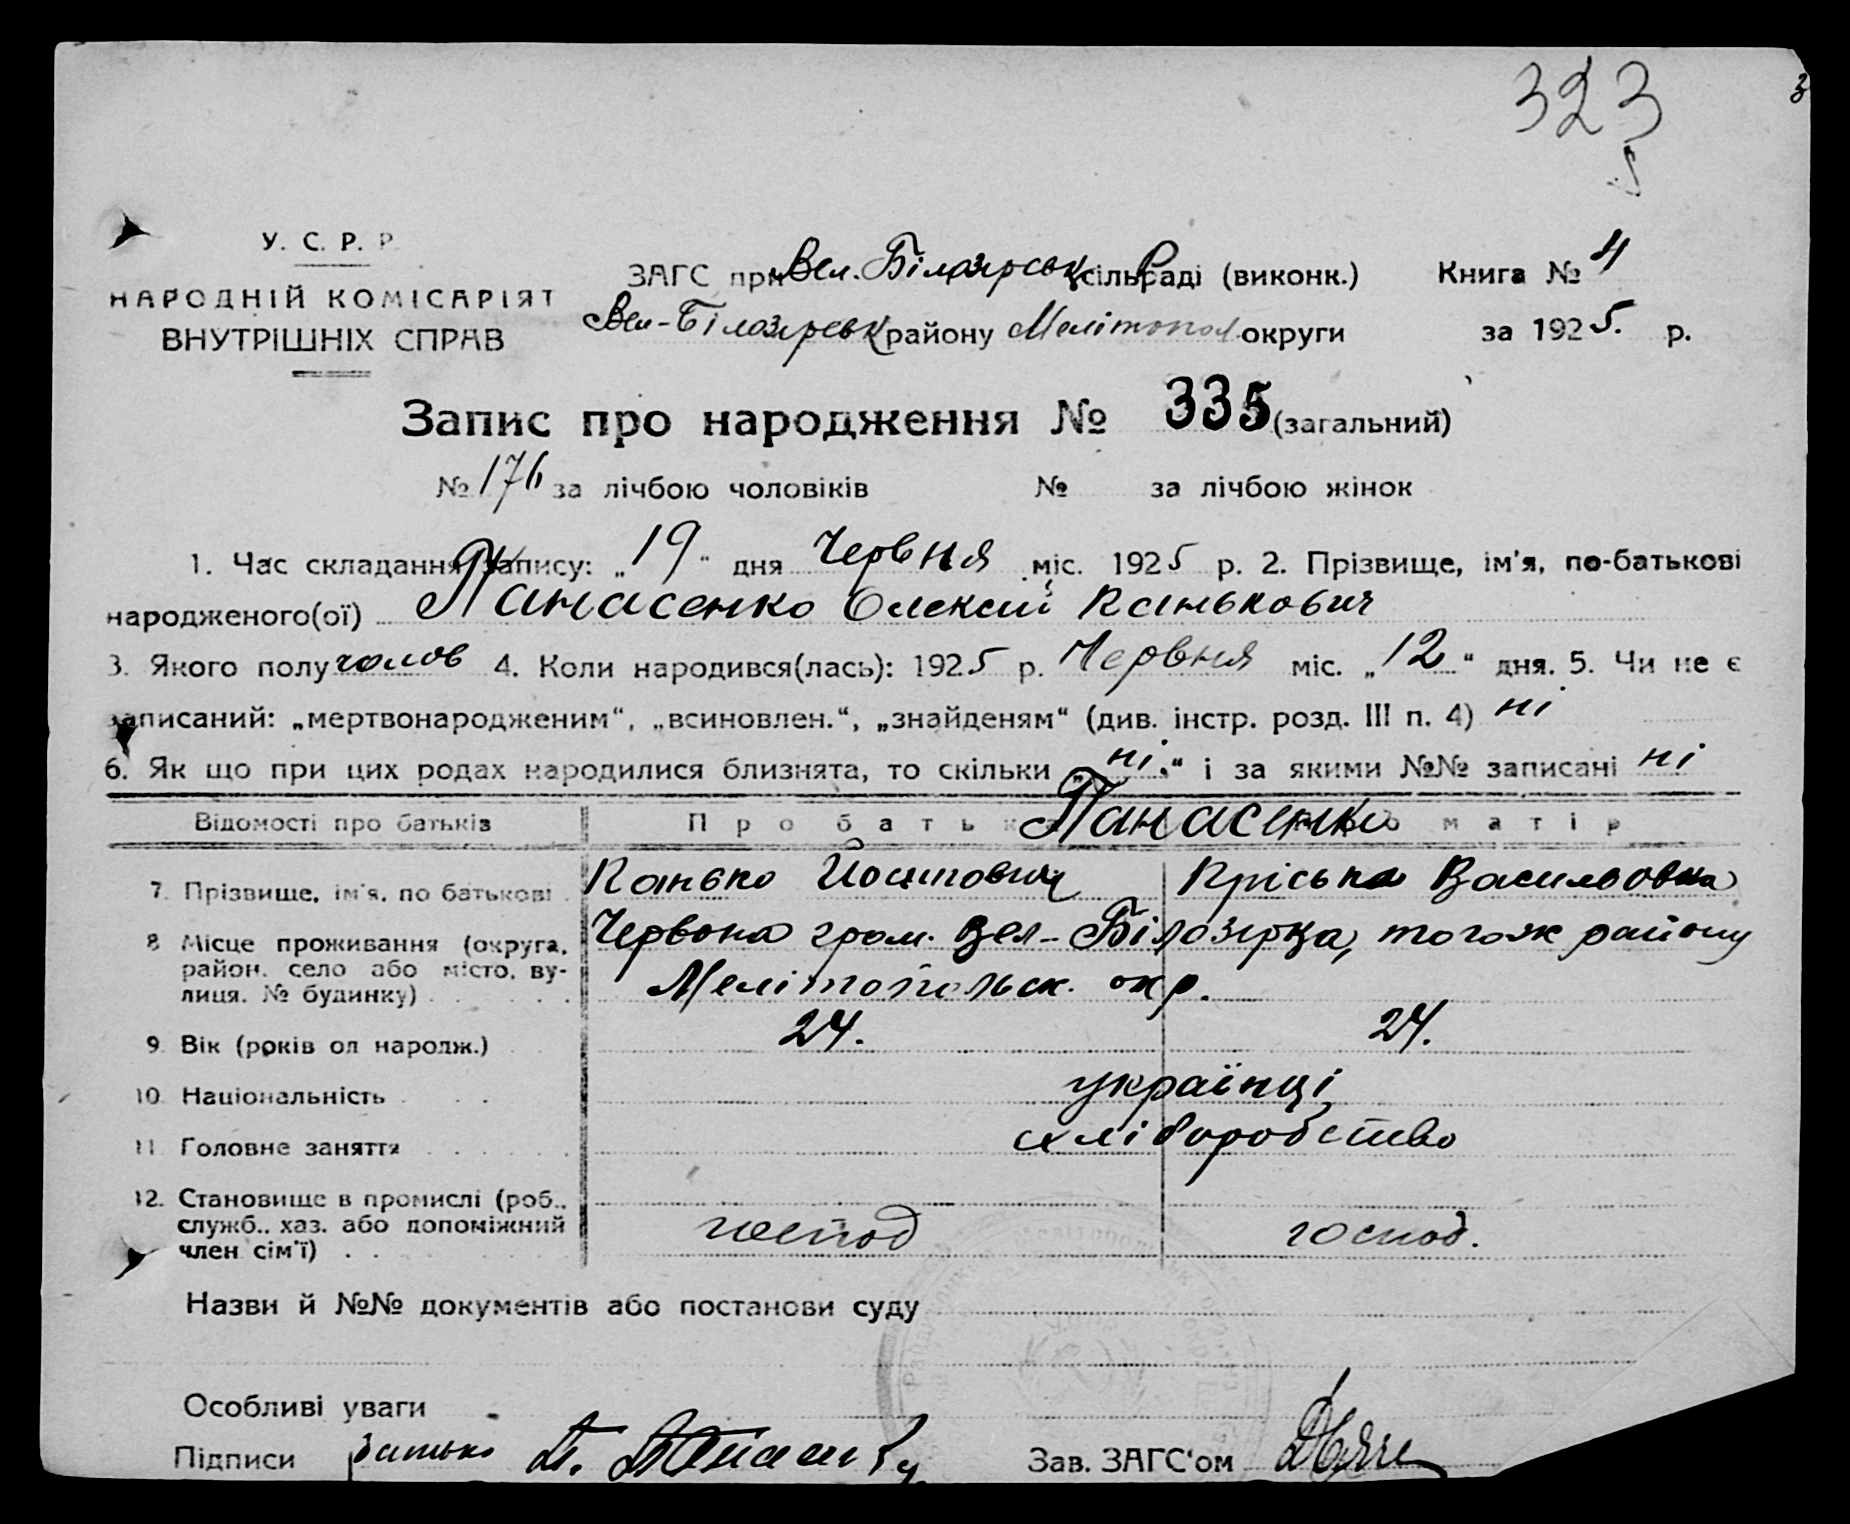 323
У. С. Р. Р.
НАРОДНІЙ КОМІСАРІЯТ
ВНУТРІШНІХ СПРАВ
ЗАГС при Вел. Білозірськ сільраді (виконк.) Книга № 4
Вел-Білозірськ району Мелітопол округи за 1925 р.
Запис про народження № 335 (загальний)
№ 176 за лічбою чоловіків № за лічбою жінок
1. Час складання запису: „19“ дня Червня міс. 1925 р. 2. Прізвище, ім'я, по-батькові
народженого(ої) Панасенко Олексій Канькович
3. Якого полу чолов 4. Коли народився(лась): 1925 р. Червня міс. „12“ дня. 5. Чи не є
записаний: „мертвонародженим“, „всиновлен.“, „знайденям“ (див. інстр. розд. III п. 4) ні
6. Як що при цих родах народилися близнята, то скільки „ні“ і за якими №№ записані ні
Відомості про батьків Про батька Панасенко Про матір
7. Прізвище, ім'я, по батькові Канько Йосипович Кріська Васильовна
8. Місце проживання (округа, район, село або місто, ву- лиця, № будинку) Червона гром. Вел-Білозірка, того ж району
Мелітопольск. окр.
9. Вік (років од народж.) 24. 24.
10. Національність українці
11. Головне заняття хліборобство
12. Становище в промислі (роб., служб., хаз. або допоміжний член сім'ї) господ господ.
Назви й №№ документів або постанови суду
Особливі уваги
Підписи батько Зав. ЗАГС'ом